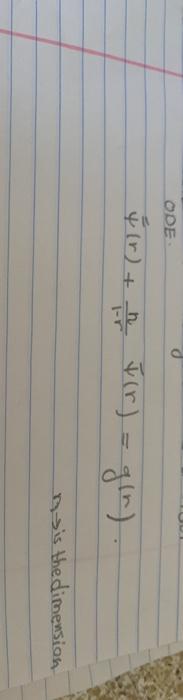 ODE.
ψ̈(r) + n/(1-r) ψ̇(r) = g(r).
n → is the dimension